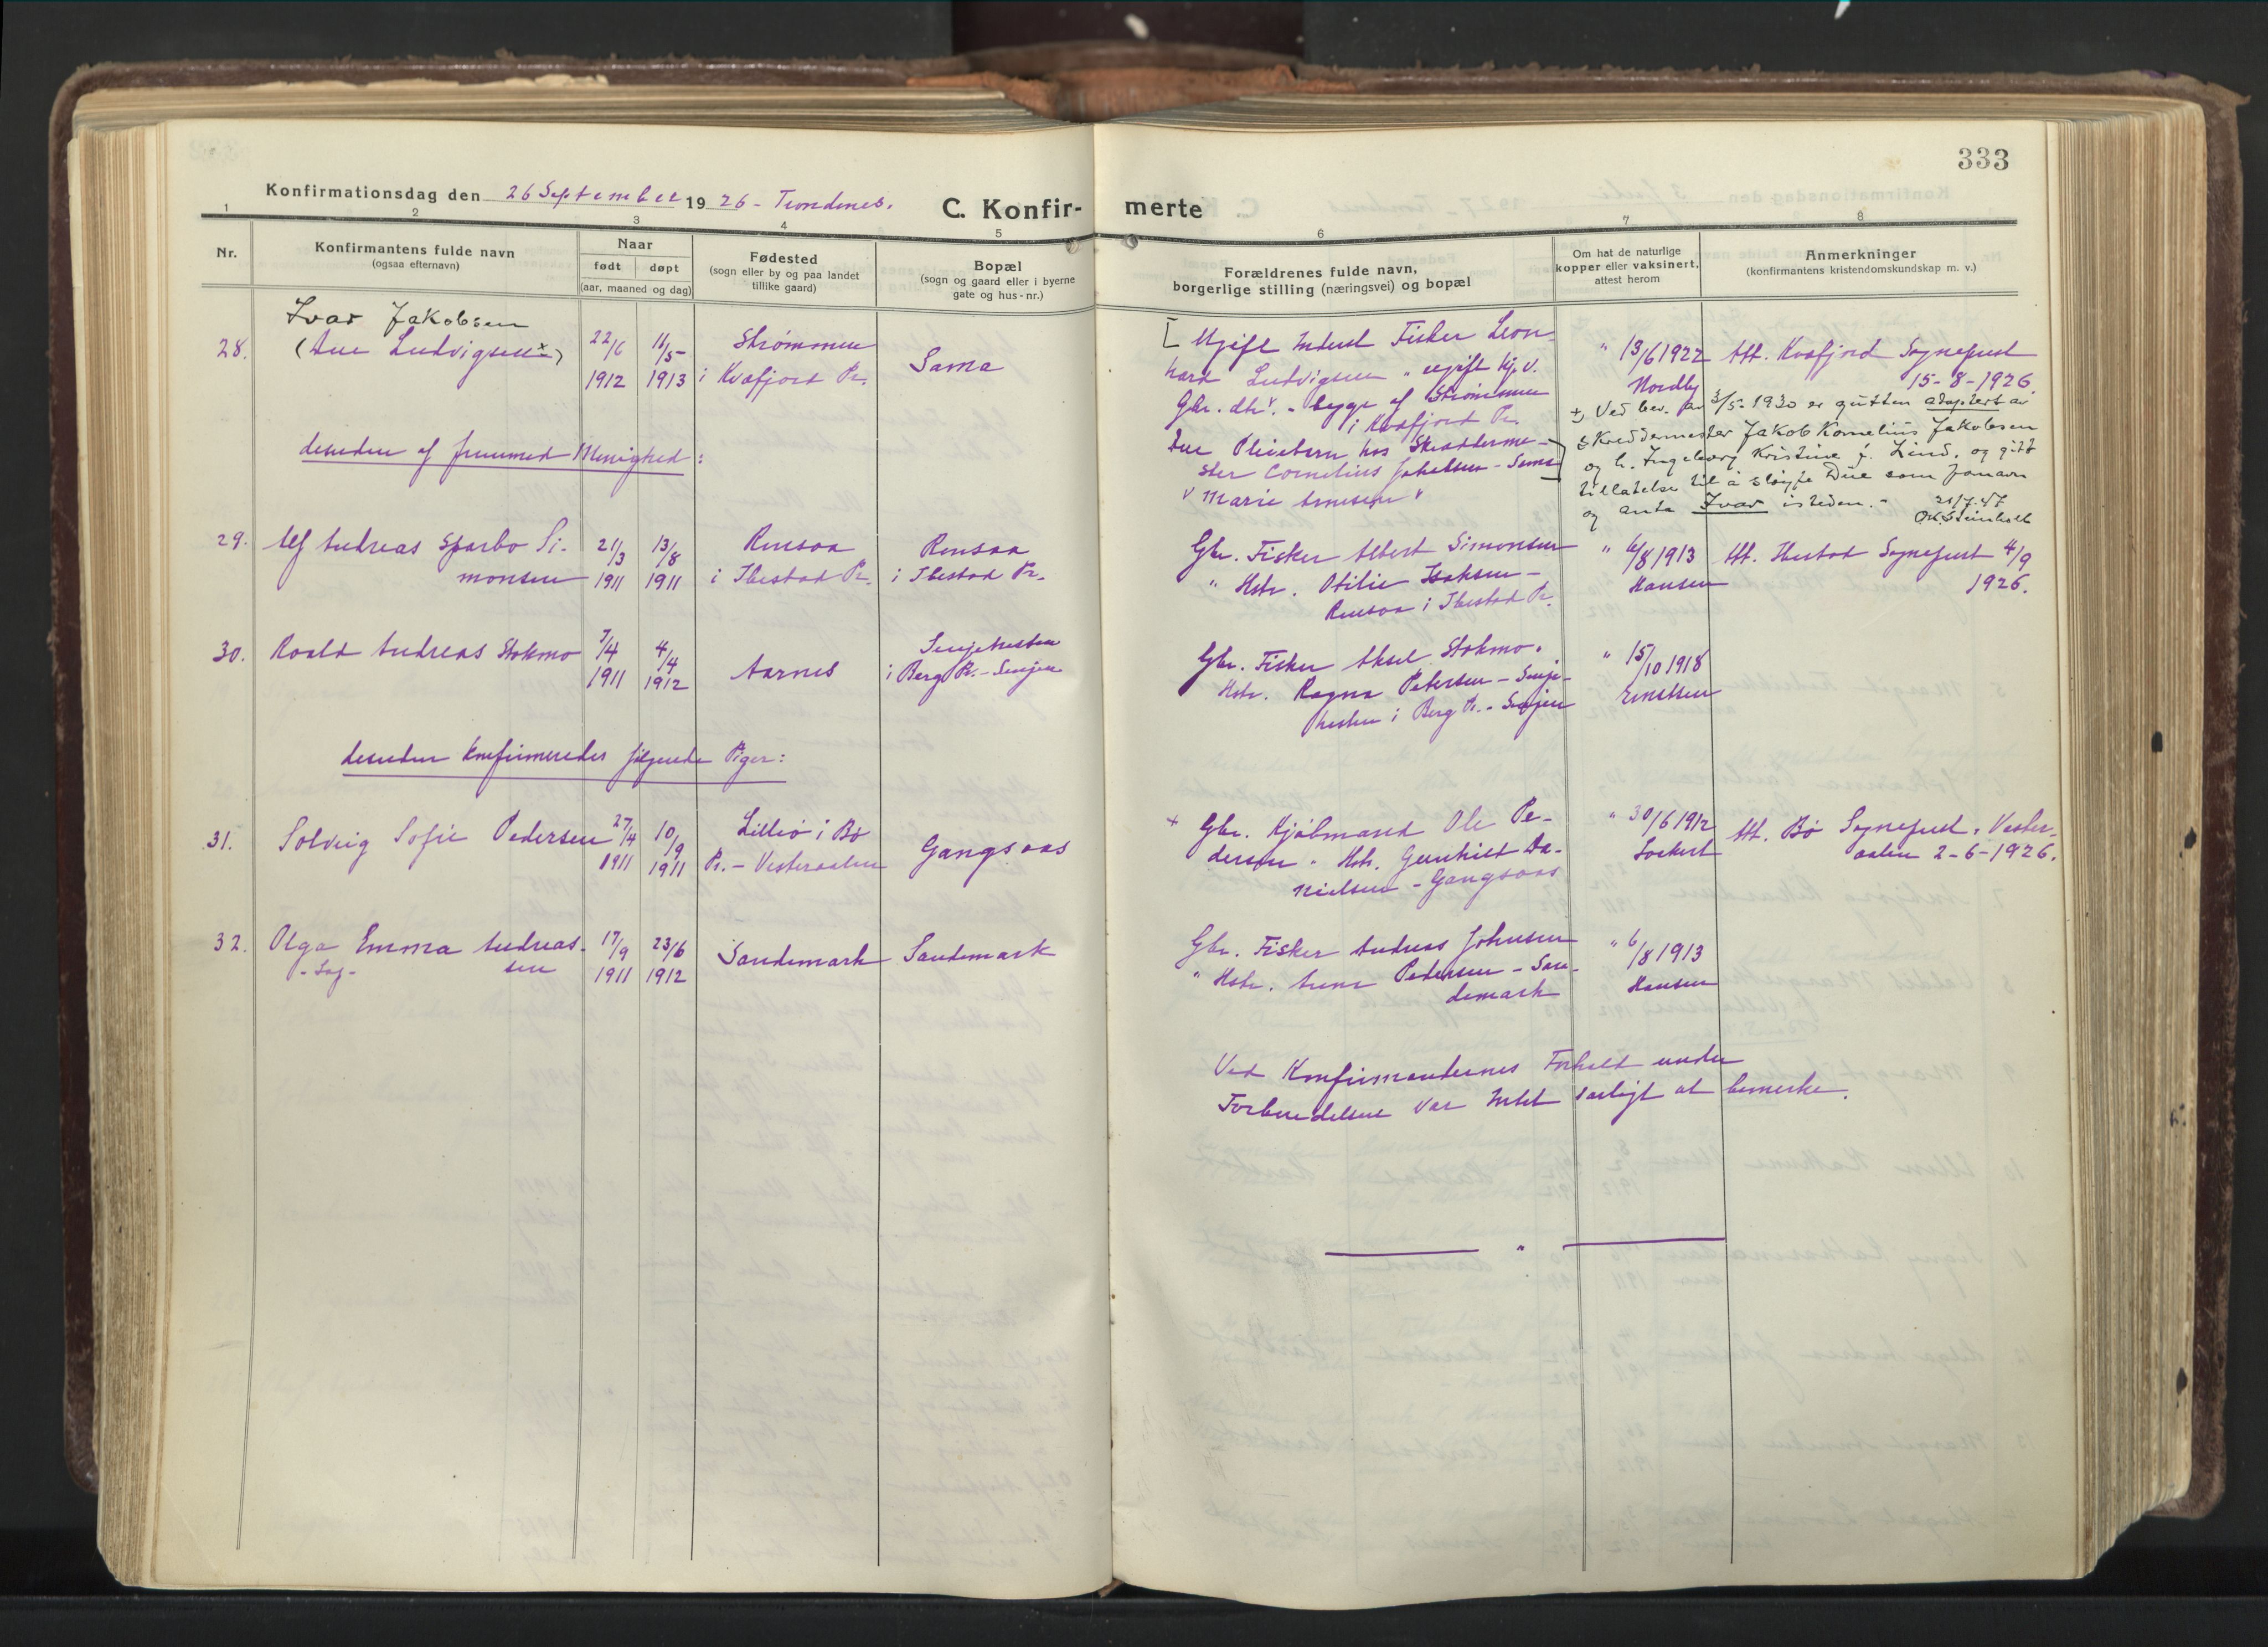 333
Konfirmationsdag den 26 September 1926 - Trondenes.
C. Konfirmerte
1 2 3 4 5 6 7 8
Nr.
Konfirmantens fulde navn
(ogsaa efternavn)
Naar
født døpt
(aar, maaned og dag)
Fødested
(sogn eller by og paa landet
tillike gaard)
Bopæl
(sogn og gaard eller i byerne
gate og hus-nr.)
Forældrenes fulde navn,
borgerlige stilling (næringsvei) og bopæl
Om hat de naturlige
kopper eller vaksinert,
attest herom
Anmerkninger
(konfirmantens kristendomskundskap m. v.)
Ivar Jakobsen
28. (Due Ludvigsen x)
22/6 1912
11/5 1913
Strømmen
i Kvæfjord Pr.
Sama
[ Ugift Inderst Fisker Leon-
hard Ludvigsen " ugift Kj. v.
Gbr. dtr. - begge af Strømmen
i Kvæfjord Pr.
Due Pleiebarn hos Skrædderme-
ster Cornelius Jakobsen - Sama
v Marie Arnesen "
" 13/6 1922
Nordby
Att. Kvæfjord Sognepræst
15-8-1926.
+, Ved bev. av 3/5-1930 er gutten adoptert av
skreddermester Jakob Kornelius Jakobsen
og h. Ingeborg Kristine f. Lind, og gitt
tillatelse til å sløyfe Due som fornavn
og anta Ivar isteden. -
21/7.47
O.K. Steinholt
desuden af fremmed Menighed:
29. Alf Andreas Sparbo Si-
monsen
21/3 1911
13/8 1911
Rensaa
i Ibestad Pr.
Rensaa
i Ibestad Pr.
Gbr. Fisker Albert Simonsen
" Hstr. Otilie Isaksen -
Rensaa i Ibestad Pr.
" 6/8 1913
Hansen
Att. Ibestad Sognepræst 4/9
1926.
30. Roald Andreas Stokmo
7/4 1911
4/4 1912
Aarnes
Senjehesten
i Berg Pr. - Senjen
Gbr. Fisker Aksel Stokmo.
Hstr. Ragna Petersen - Senje-
hesten i Berg Pr. - Senjen
" 15/10 1918
Ernstsen
desuden konfirmeredes følgende Piger:
31. Solveig Sofie Pedersen
27/4 1911
10/9 1911
Lillø i Bø
Pr. - Vesteraalen
Gangsaas
+ Gbr. Kjøbmand Ole Pe-
dersen " Hstr. Gunhild Da-
nielsen - Gangsaas
" 30/6 1912
Lockert
Att. Bø Sognepræst, Vester-
aalen 2-6-1926.
32. Olga Emma Andreas-
sen
17/9 1911
23/6 1912
Sandemark
Sandemark
Gbr. Fisker Andreas Johnsen
" Hstr. Anne Pedersen - San-
demark
" 6/8 1913
Hansen
Ved Konfirmandernes Forhold under
Forberedelsen var Intet særligt at bemerke.